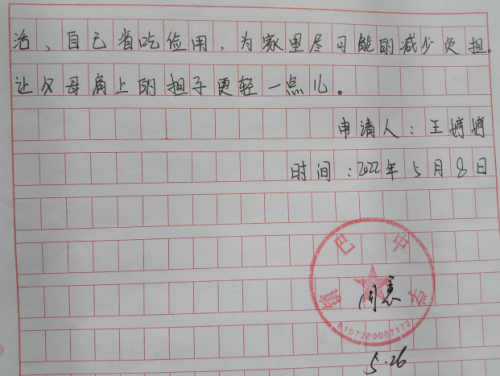 治、自己省吃俭用，为家里尽可能的减少负担.
让父母肩上的担子更轻一点儿。
申请人：王婷婷
时间：2022年5月8日
同意
5.26